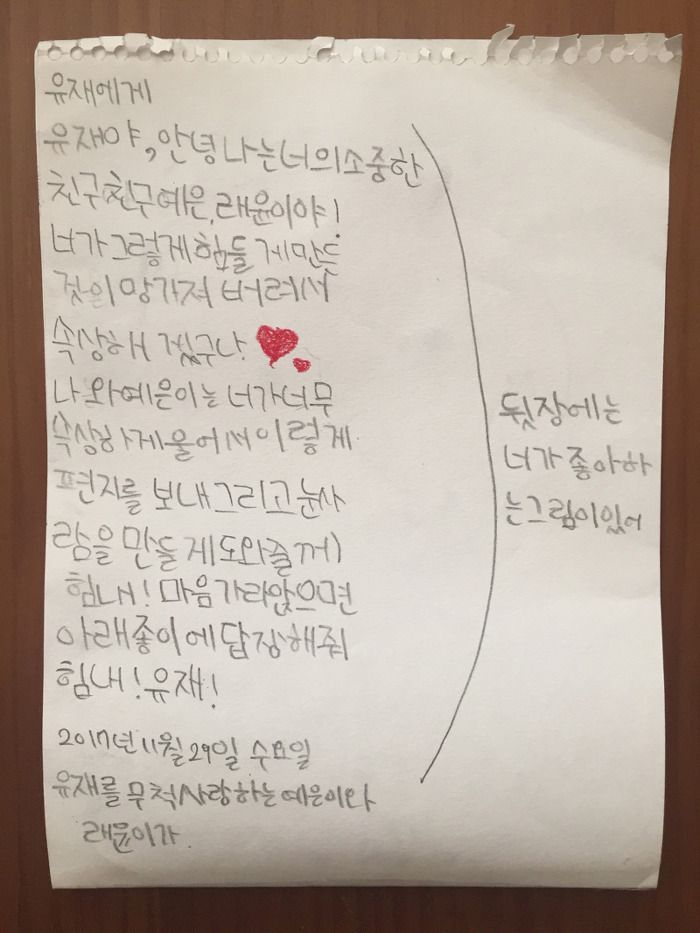 유재에게
유재야, 안녕 나는 너의 소중한
친구친구예은, 래윤이야!
너가 그렇게 힘들게 만든
것이 망가져 버려서
속상해 겠구나
나와 예은이는 너가 너무
속상하게 울어서 이렇게
편지를 보내 그리고 눈사
람을 만들게 도와줄께)
힘내! 마음 가라앉으면
아래 좋이에 답장해줘
힘내! 유재!
2017년 11월 29일 수요일
유재를 무척 사랑하는 예은이와
래윤이가
뒷장에는
너가 좋아하
는 그림이 있어